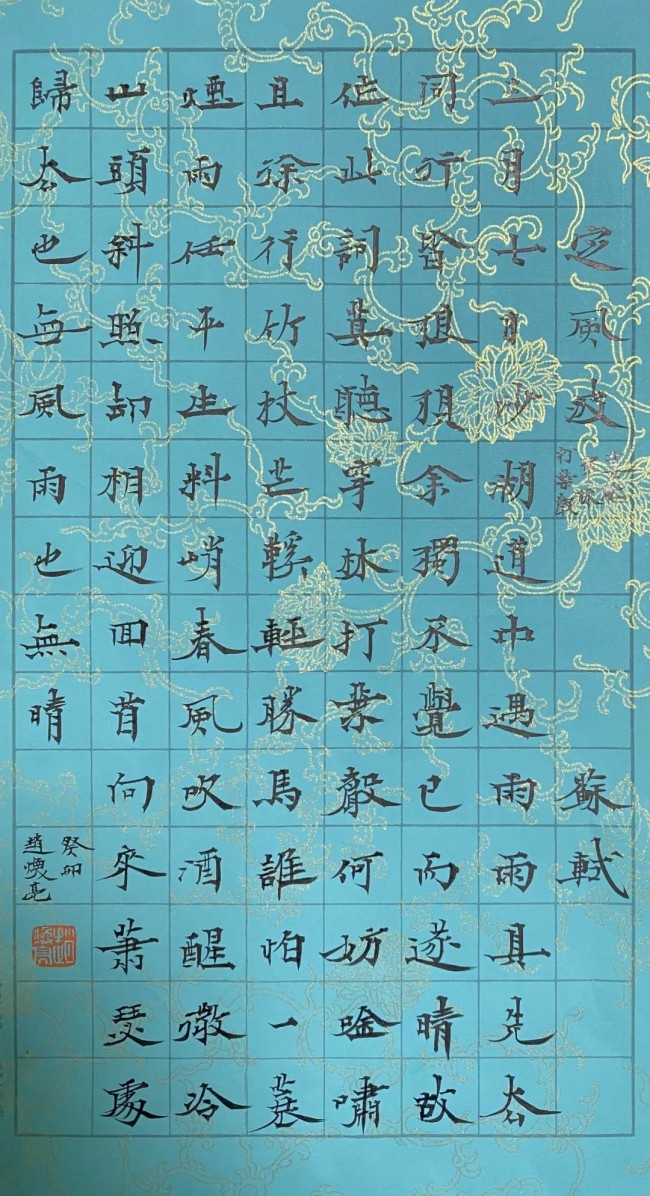 定風波
打葉聲
蘇軾
三月七日沙湖道中遇雨雨具先去
同行皆狼狽余獨不覺已而遂晴故
作此詞莫聽穿林打葉聲何妨吟嘯
且徐行竹杖芒鞋輕勝馬誰怕一蓑
煙雨任平生料峭春風吹酒醒微冷
山頭斜照卻相迎回首向來蕭瑟處
歸去也無風雨也無晴
癸卯
趙煥亮